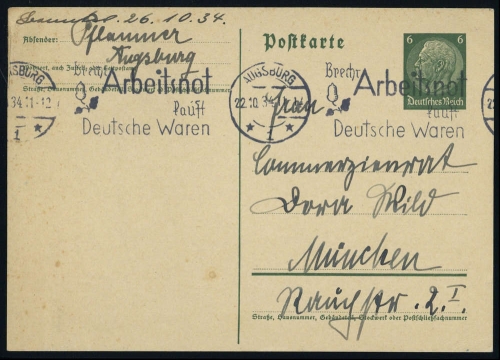 26.10.34.
Absender: Pflanner
Augsburg
Straße, Hausnummer, Gebäudeteil, Stockwerk oder Postschließfachnummer
AUGSBURG
34.11-12
1
Brecht
Arbeitsnot
kauft
Deutsche Waren
Postkarte
AUGSBURG
22.10.34
1
Brecht
Arbeitsnot
kauft
Deutsche Waren
6 6
Deutsches Reich
Frau
Commerzienrat
Dora Wild
München
Rauchstr. 2.I.
Straße, Hausnummer, Gebäudeteil, Stockwerk oder Postschließfachnummer